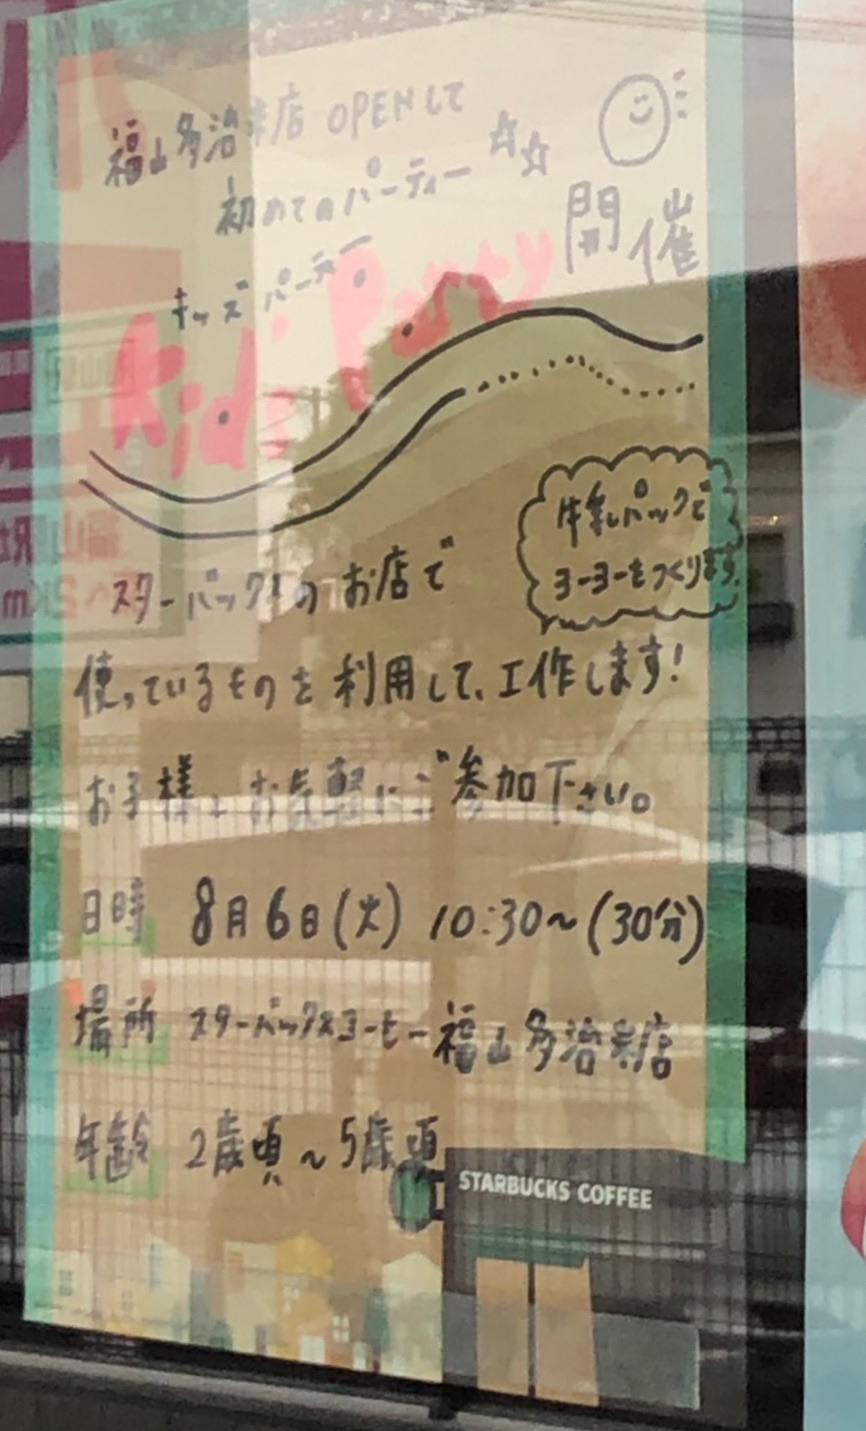 福山多治米店 OPENして
初めてのパーティー ☆☆
開催
キッズ パーティー
Kid's Party
牛乳パックで
ヨーヨーをつくります。
スターバックスのお店で
使っているものを利用して、工作します!
お子様とお気軽にご参加下さい。
日時 8月6日(火) 10:30~(30分)
場所 スターバックスコーヒー福山多治米店
年齢 2歳頃~5歳頃
STARBUCKS COFFEE